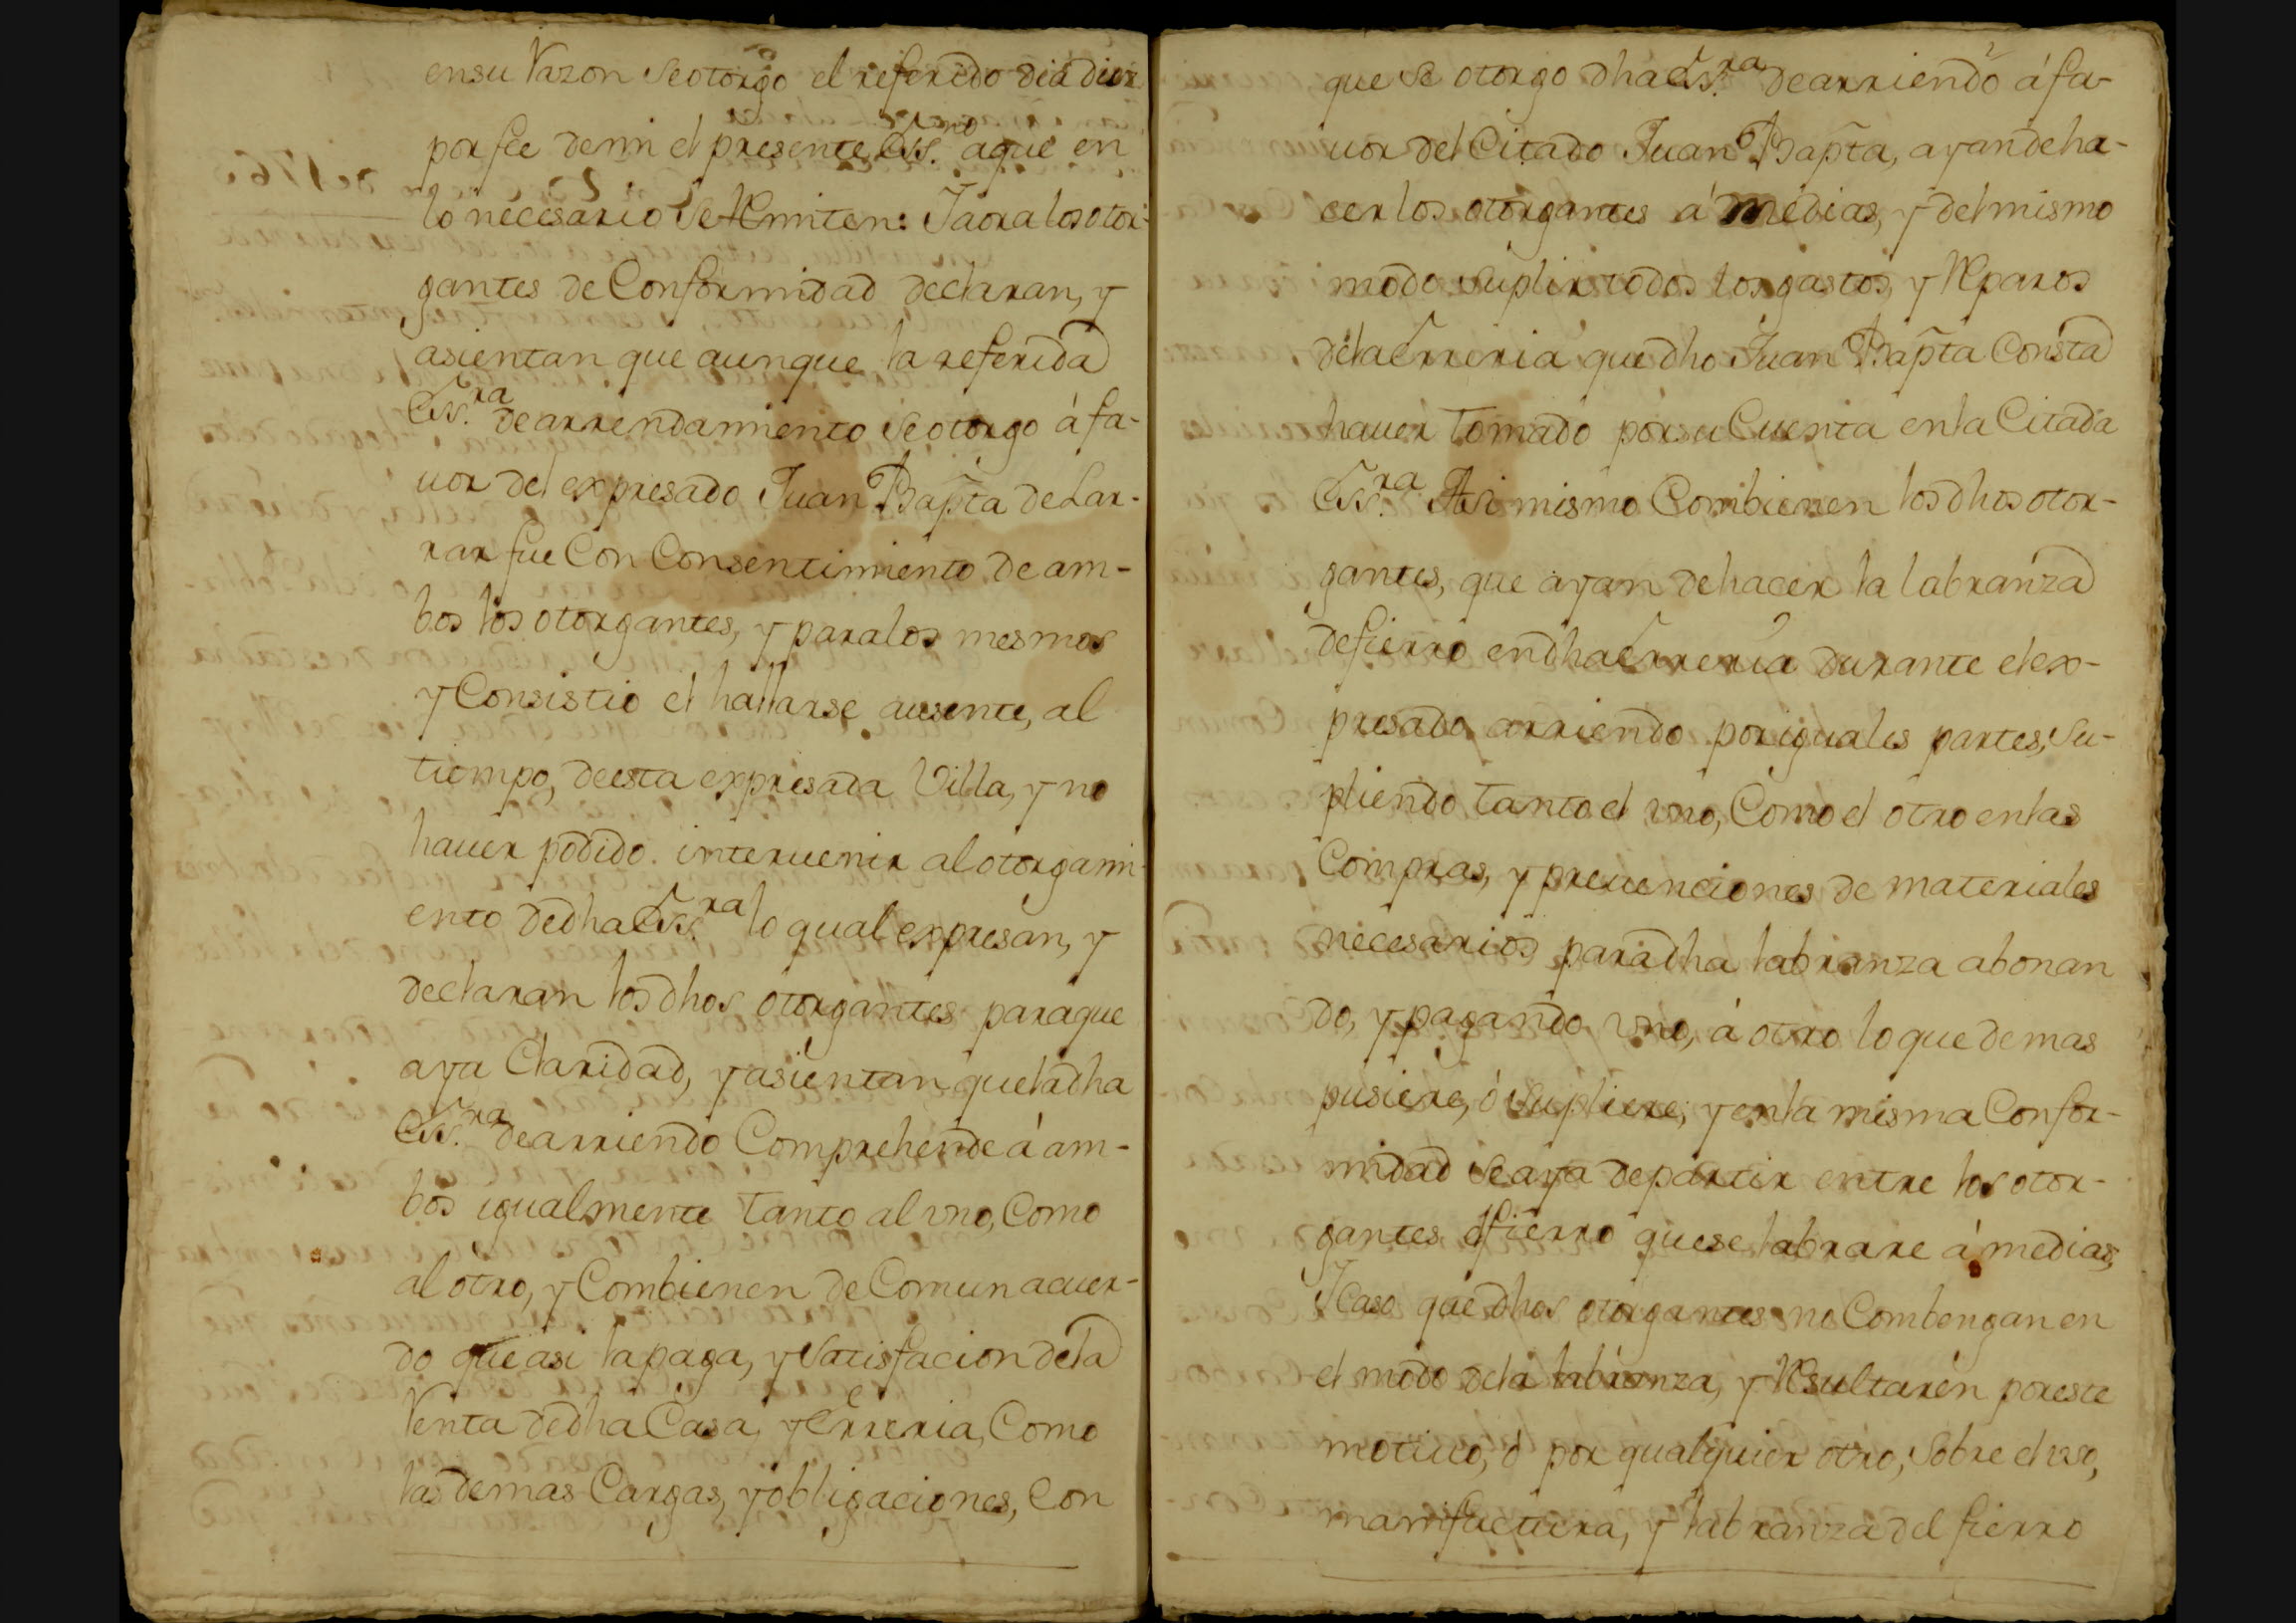 en su Razon se otorgo el referido dia diez
por fee de mi el presente Ess.no a que en
lo necesario se Remiten: Y aora los otor-
gantes de Conformidad declaran, y
asientan que aunque la referida
Ess.ra de arrendamiento se otorgo á fa-
uor del expresado Juan Bapta de Lar-
rar fue Con Consentimiento de am-
bos los otorgantes, y para los mesmos
y Consistio el hallarse ausente, al
tiempo, de esta expresada Villa, y no
hauer podido interuenir al otorgami-
ento de dha Ess.ra lo qual expresan, y
declaran los dhos otorgantes para que
aya Claridad, y asientan que la dha
Ess.ra de arriendo Comprehende á am-
bos igualmente tanto al vno, Como
al otro, y Combienen de Comun acuer-
do que asi la paga, y satisfacion de la
Renta de dha Casa, y Erreria, Como
las demas Cargas, y obligaciones, Con
que se otorgo dha Ess.ra de arriendo á fa-
uor del Citado Juan Bapta, ayan de ha-
cer los otorgantes á medias, y del mismo
modo suplir todos los gastos, y Reparos
de la Erreria que dho Juan Bapta Consta
hauer tomado por su Cuenta en la Citada
Ess.ra Asi mismo Combienen los dhos otor-
gantes, que ayan de hacer la labranza
de fierro en dha Erreria durante el ex-
presado arriendo por iguales partes, su-
pliendo tanto el vno, Como el otro en las
Compras, y preuenciones de materiales
necesarios para dha labranza abonan
do, y pagando vno, á otro lo que de mas
pusiere, ó supliere; y en la misma Confor-
midad se aya de partir entre los otor-
gantes el fierro que se labrare á medias,
Y Caso que dhos otorgantes no Combengan en
el modo de la labranza, y Resultaren por este
motiuo, ó por qualquier otro, sobre el vso,
manifactura, y labranza del fierro